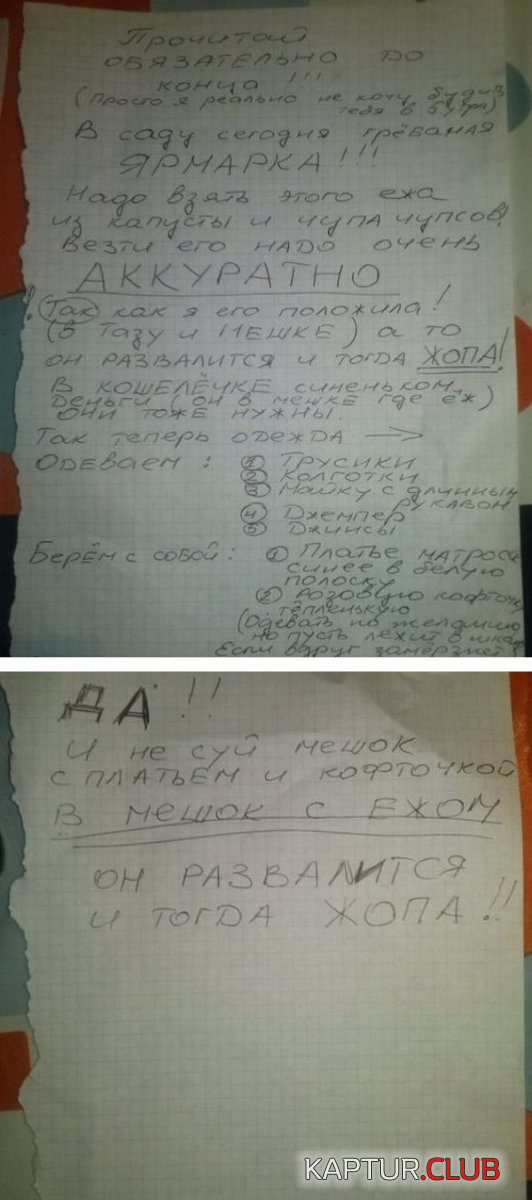 Прочитай
ОБЯЗАТЕЛЬНО ДО
КОНЦА !!!
(Просто я реально не хочу будить
тебя в 6 утра)
В саду сегодня грёбаная
ЯРМАРКА!!!
Надо взять этого ежа
из капусты и чупа чупсов!
Везти его НАДО очень
АККУРАТНО
! Так как я его положила!
(В тазу и МЕШКЕ) а то
он РАЗВАЛИТСЯ и тогда ЖОПА!
В КОШЕЛЁЧКЕ синеньком
Деньги (он в мешке где ёж)
ОНИ ТОЖЕ НУЖНЫ.
Так теперь одежда →
Одеваем : ① Трусики
② Колготки
③ Майку с длинным
рукавом
④ Джемпер
⑤ Джинсы
Берём с собой : ① Платье матроса
синее в белую
полоску
② Розовую кофточку
тёпленькую
(Одевать по желанию
но пусть лежит в шкафу
Если вдруг замёрзнет)
ДА !!
И не суй мешок
с платьем и кофточкой
В МЕШОК С ЕЖОМ
ОН РАЗВАЛИТСЯ
И ТОГДА ЖОПА !!
KAPTUR.CLUB